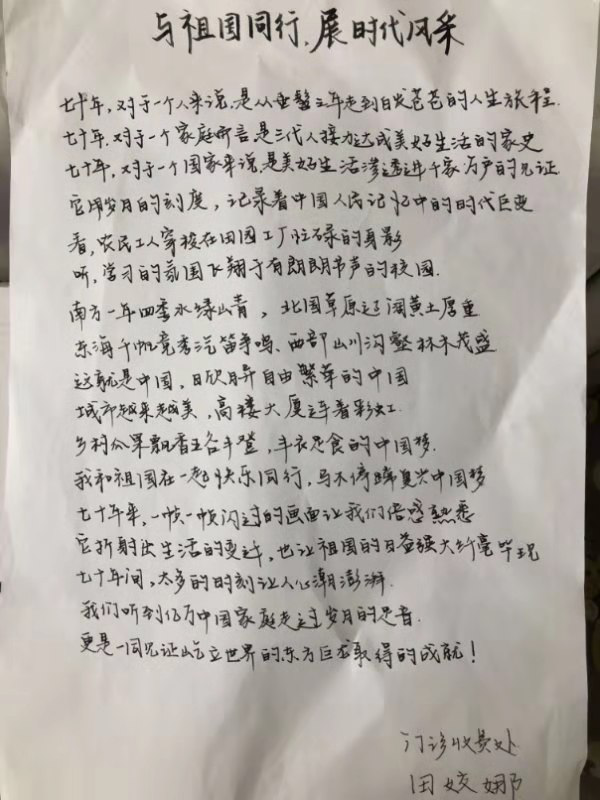 与祖国同行,展时代风采
七十年,对于一个人来说,是从垂髫之年走到白发苍苍的人生旅程.
七十年,对于一个家庭而言,是三代人接力达成美好生活的家史
七十年,对于一个国家来说,是美好生活渗透进千家万户的见证.
它用岁月的刻度,记录着中国人民记忆中的时代巨变
看,农民工人穿梭在田园工厂忙碌的身影
听,学习的氛围飞翔于有朗朗书声的校园.
南方一年四季水绿山青,北国草原辽阔黄土厚重
东海千帆竞秀汽笛争鸣、西部山川沟壑林木茂盛
这就是中国,日欣月异自由繁华的中国
城市越来越美,高楼大厦连着彩虹.
乡村瓜果飘香五谷丰登,丰衣足食的中国梦.
我和祖国在一起快乐同行,马不停蹄复兴中国梦
七十年来,一帧一帧闪过的画面让我们倍感熟悉
它折射出生活的变迁,也让祖国的日益强大纤毫毕现
七十年间,太多的时刻让人心潮澎湃.
我们听到亿万中国家庭走过岁月的足音.
更是一同见证屹立世界的东方巨龙取得的成就!
门诊收费处
田姣娜